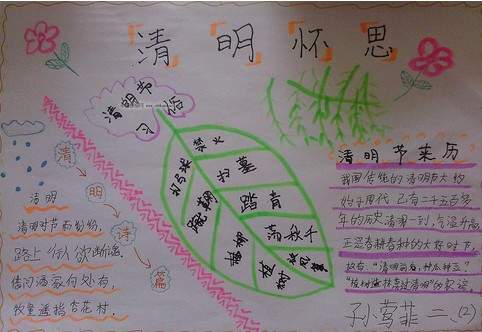 清明怀思
清明节
习俗
禁火
扫墓
踏青
荡秋千
蹴鞠
植树
清
明
诗
篇
清明
清明时节雨纷纷,
路上行人欲断魂。
借问酒家何处有,
牧童遥指杏花村。
清明节来历
我国传统的清明节大约
始于周代,已有二千五百多
年的历史,清明一到,气温升高,
正是春耕春种的大好时节,
故有:"清明前后,种瓜种豆"
"植树造林莫过清明"的农谚
孙小莺菲 二、(2)